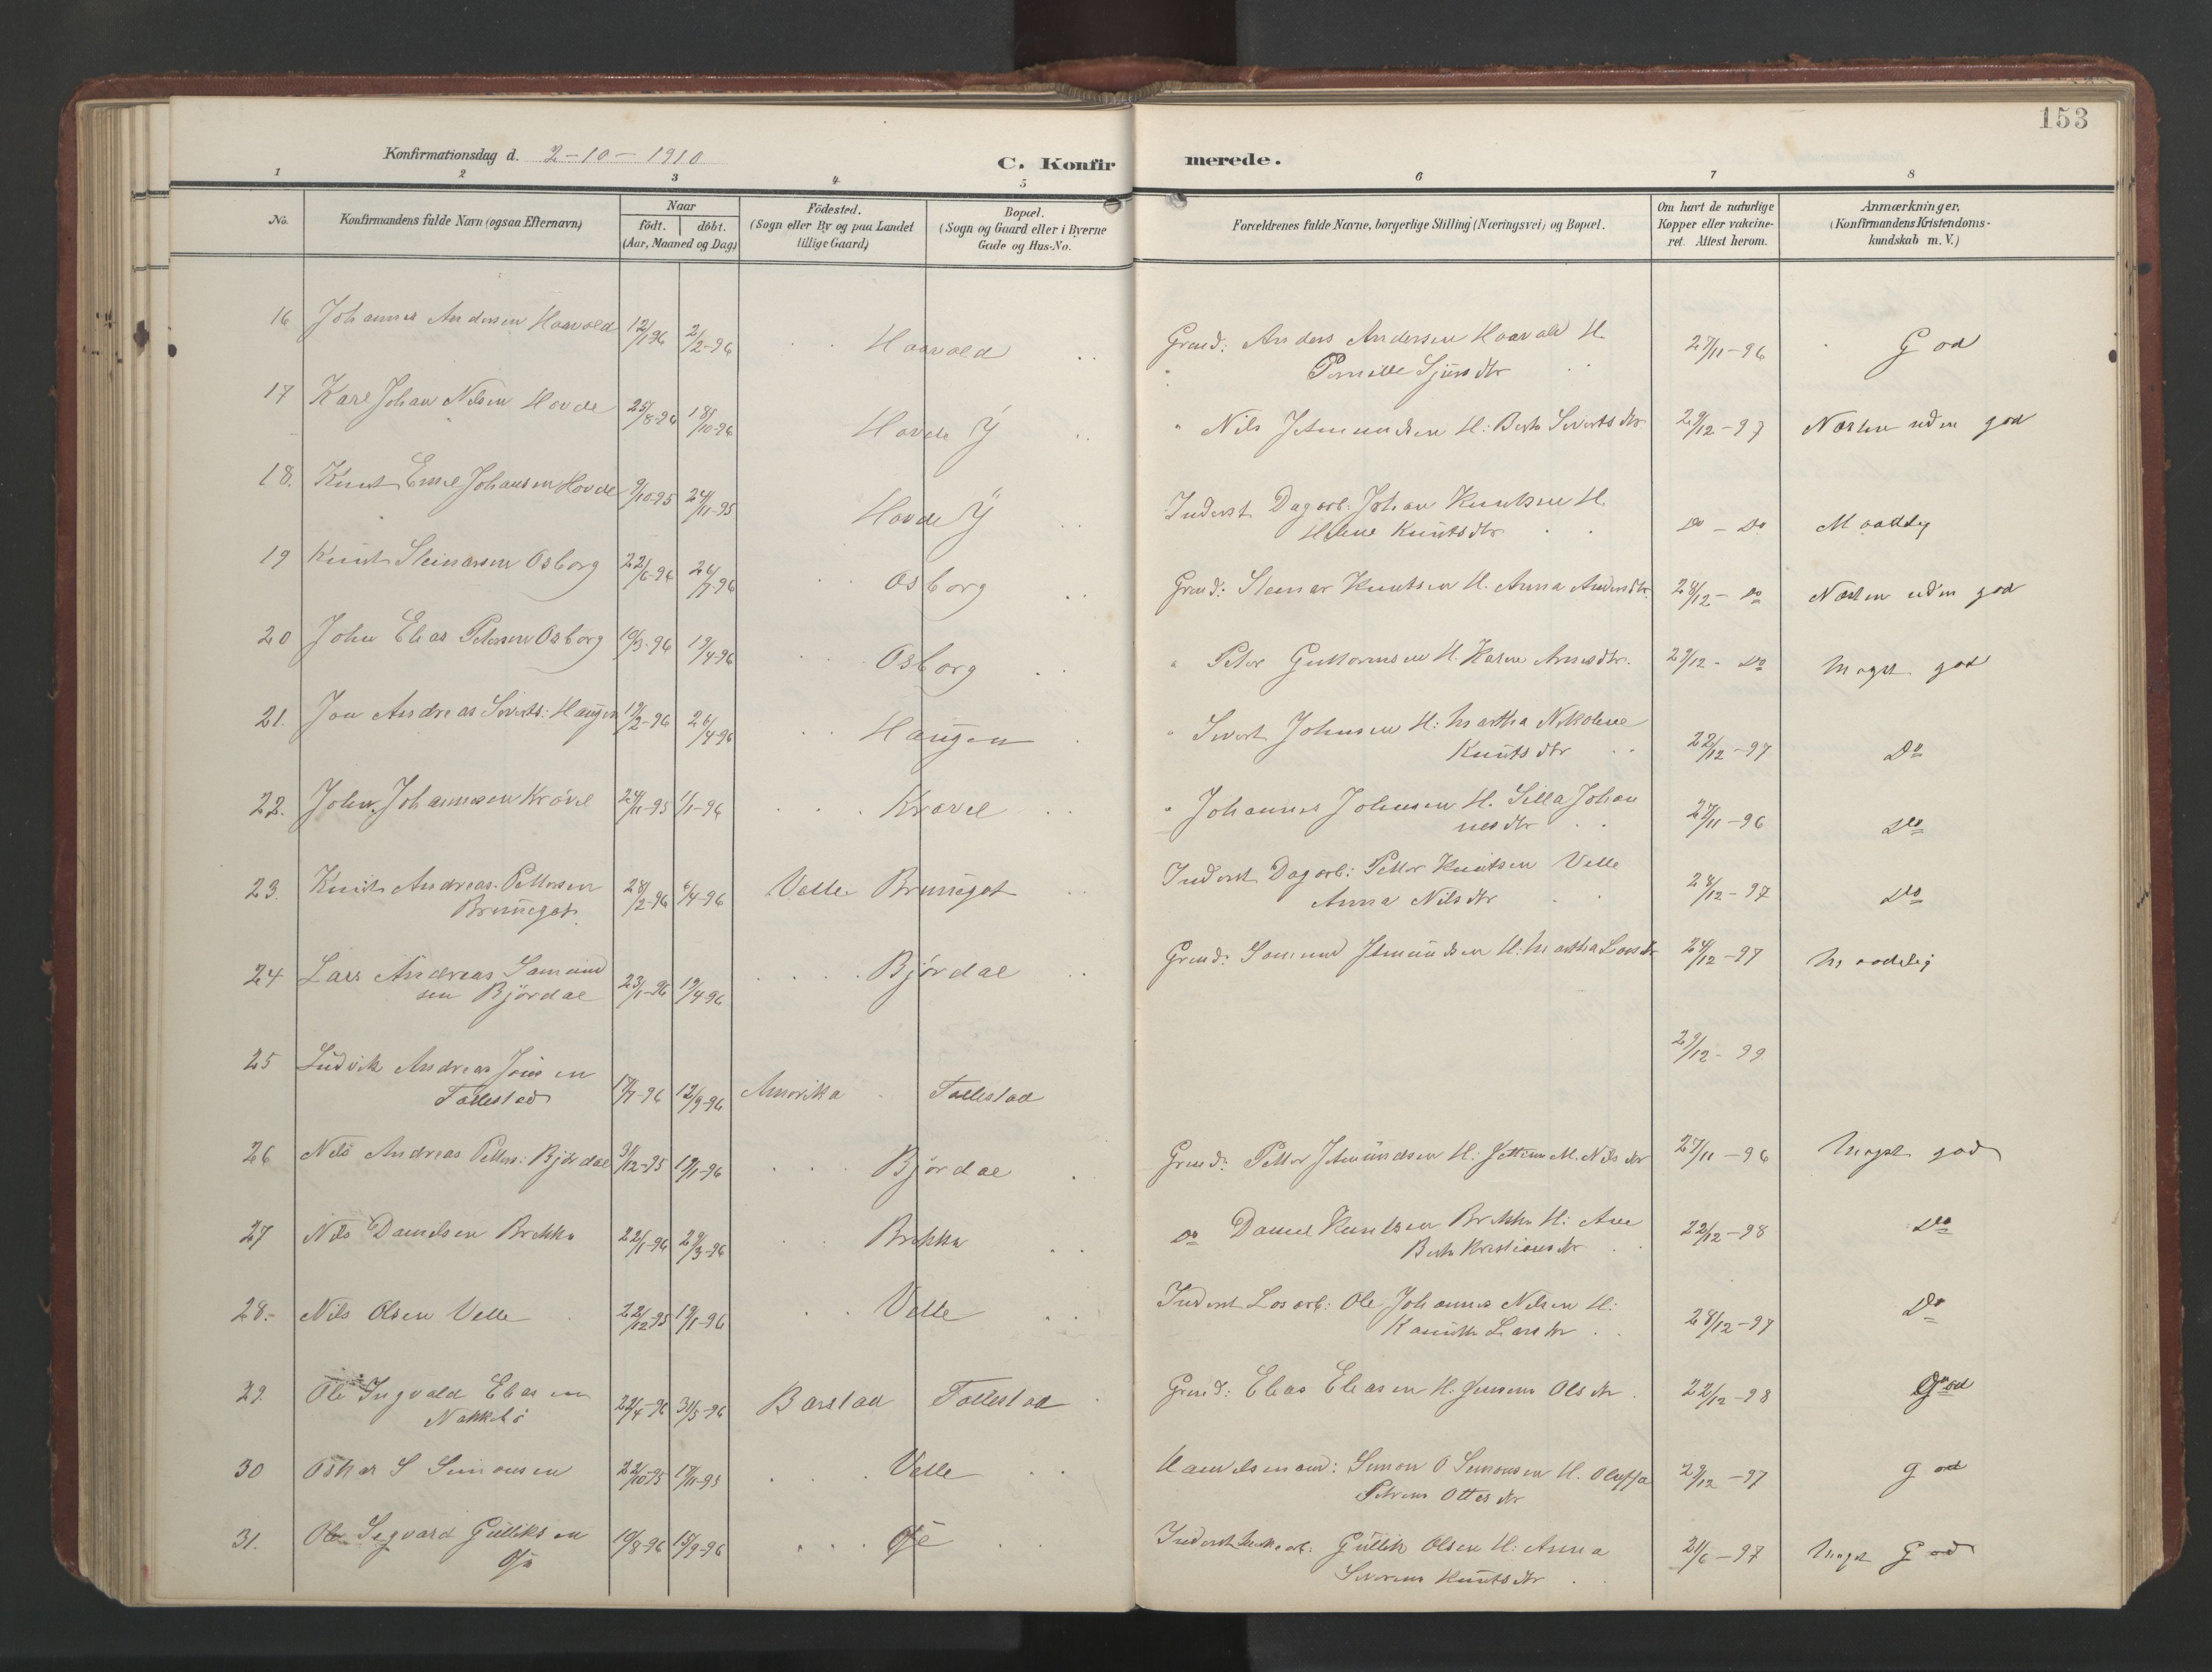 153
Konfirmationsdag d. 2-10-1910
C. Konfirmerede.
1 2 3 4 5 6 7 8
No.
Konfirmandens fulde Navn (ogsaa Efternavn)
Naar
født. døbt.
(Aar, Maaned og Dag)
Födested.
(Sogn eller By og paa Landet
tillige Gaard)
Bopæl.
(Sogn og Gaard eller i Byerne
Gade og Hus-No.
Forældrenes fulde Navne, borgerlige Stilling (Næringsvei) og Bopæl.
Om havt de naturlige
Kopper eller vakcine-
ret. Attest herom.
Anmærkninger,
(Konfirmandens Kristendoms-
kundskab m. V.)
16 Johannes Andersen Haavold 12/1 96 2/2-96 Haavold Grmd: Anders Andersen Haavold H. 27/11-96 God
Pernille Sjursdtr
17 Karl Johan Nilsen Hovde 25/8-96 18/10-96 Hovde Y " Nils Jetmundsen H: Berte Sivertsdtr 29/12-97 Næsten uden god
18. Knut Emil Johansen Hovde 9/10-95 24/11-95 Hovde Y Inderst Dagarb: Johan Knutsen H.
Helene Knutsdtr Do - Do Maadelig
19 Knut Steinarsen Osborg 22/6-96 26/7-96 Osborg Grmd: Steinar Knutsen H. Anna Andersdtr. 28/12- Do Næsten uden god
20 John Elias Petersen Osborg 10/3-96 19/4-96 Osborg " Peter Guttormsen H. Karen Arnesdtr. 29/12- Do Meget god
21. Jon Andreas Siverts: Haugen 19/2-96 26/4-96 Haugen " Sivert Johnsen H: Martha Nikoline
Knutsdtr 22/12-97 Do
22. John Johannesen Krøvel 24/11-95 1/1-96 Krøvel " Johannes Johnsen H. Silla Johan
nesdtr 27/11-96 Do
23. Knut Andreas Pettersen
Bruneget 28/2-96 6/4-96 Velle Bruneget Inderst Dagarb: Petter Knutsen Velle
Anna Nilsdtr 28/12-97 Do
24 Lars Andreas Samund
sen Bjørdal 23/1-96 19/4-96 Bjørdal Grmd: Samund Jetmundsen H: Martha Larsdtr 24/12-97 Maadelig
25 Ludvik Andreas Jonsen
Tallestad 17/7-96 12/9-96 Amerika Tallestad 29/12-99
26 Nils Andreas Petters: Bjørdal 31/12-95 19/1-96 Bjørdal Grmd: Petter Jetmundsen H: Jettine M. Nilsdtr 27/11-96 Meget god
27 Nils Danielsen Brekke 22/1-96 29/3-96 Brekke Do Daniel Knutsen Brekke H: Ane
Berte Kristiansdtr 22/12-98 Do
28. Nils Olsen Velle 22/12-95 19/1-96 Velle Inderst Losarb: Ole Johannes Nilsen H:
Larsdtr 28/12-97 Do
29. Ole Ingvald Eliasen
Nakkebø 22/4-96 31/5-96 Barstad Tallestad Grmd: Elias Eliasen H. Olsdtr. 22/12-98 God
30 Oskar S Simonsen 22/10-95 17/11-95 Velle Handelsmand: Simon O Simonsen H. Oluffa
Petrine Ottesdtr 29/12-97 God
31. Ole Sigvard Gulliksen
Øie 10/8-96 15/9-96 Øie Inderst Gullik Olsen H: Anna
Severine Knutsdtr 21/6-97 Meget God